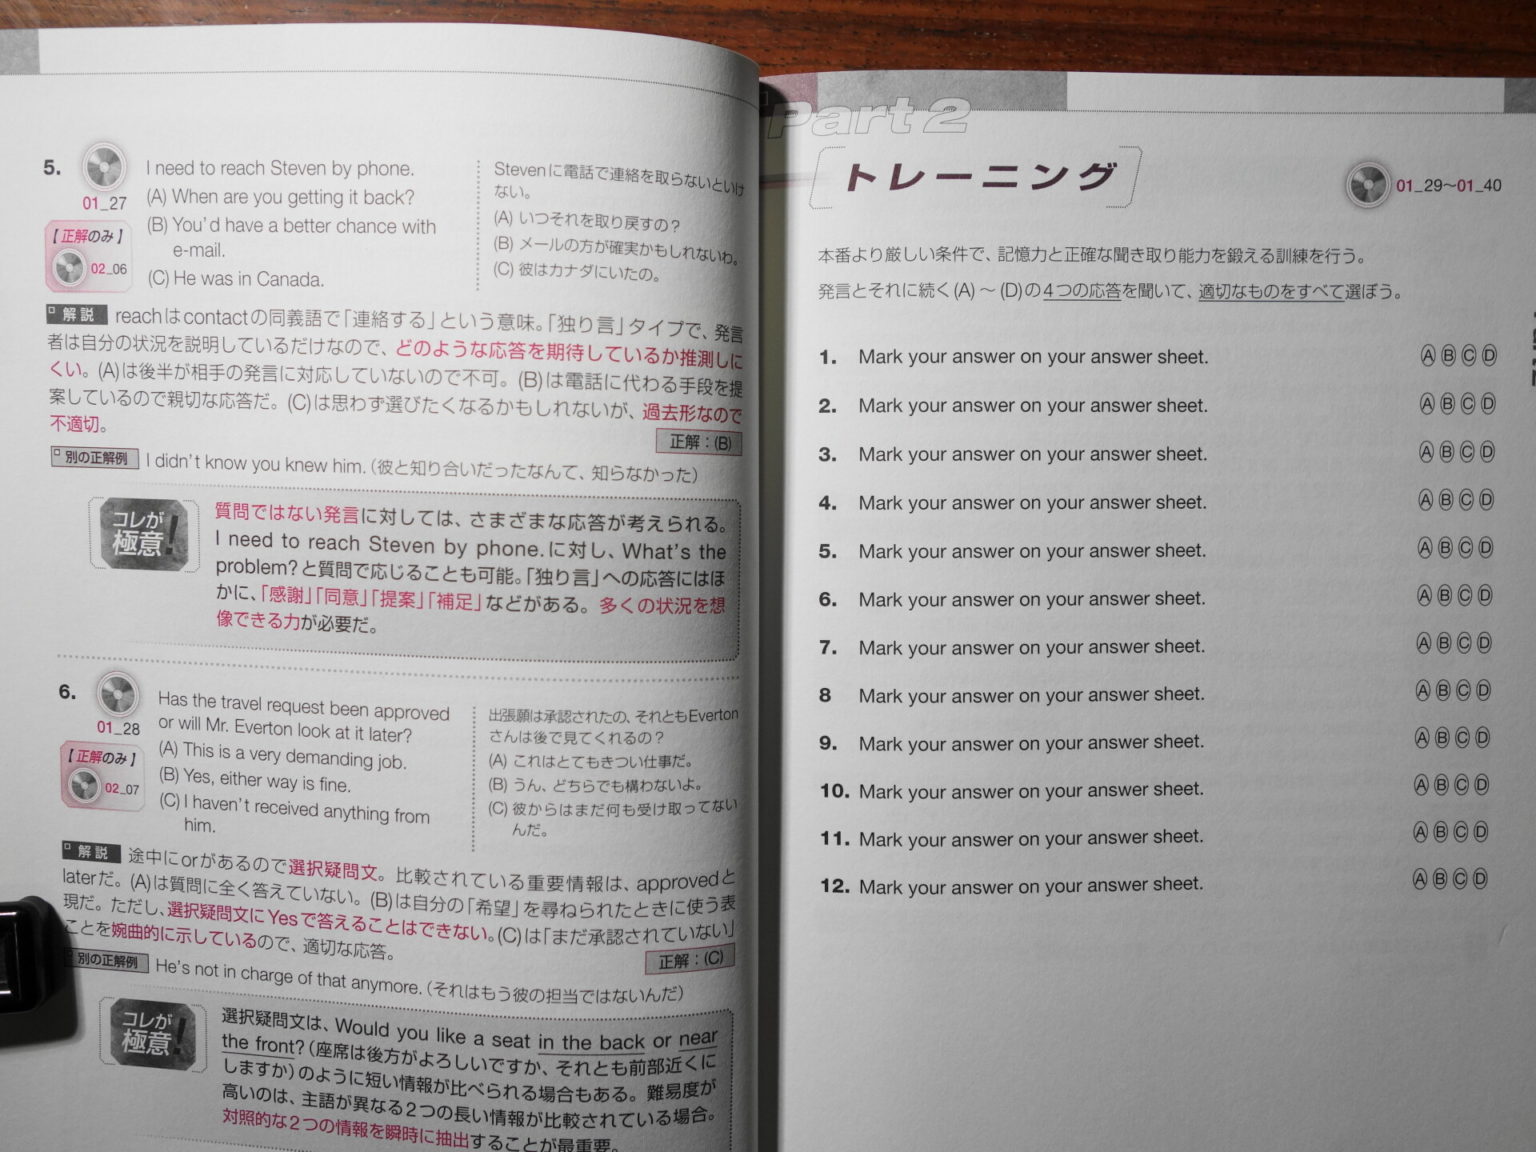 5.
01_27
【正解のみ】
02_06
I need to reach Steven by phone.
(A) When are you getting it back?
(B) You'd have a better chance with
e-mail.
(C) He was in Canada.
Stevenに電話で連絡を取らないといけ
ない。
(A) いつそれを取り戻すの？
(B) メールの方が確実かもしれないわ。
(C) 彼はカナダにいたの。
解説 reachはcontactの同義語で「連絡する」という意味。「独り言」タイプで、発言
者は自分の状況を説明しているだけなので、どのような応答を期待しているか推測しに
くい。(A)は後半が相手の発言に対応していないので不可。(B)は電話に代わる手段を提
案しているので親切な応答だ。(C)は思わず選びたくなるかもしれないが、過去形なので
不適切。
正解：(B)
別の正解例 I didn't know you knew him.（彼と知り合いだったなんて、知らなかった）
コレが
極意！
質問ではない発言に対しては、さまざまな応答が考えられる。
I need to reach Steven by phone.に対し、What's the
problem?と質問で応じることも可能。「独り言」への応答にはほ
かに、「感謝」「同意」「提案」「補足」などがある。多くの状況を想
像できる力が必要だ。
6.
01_28
【正解のみ】
02_07
Has the travel request been approved
or will Mr. Everton look at it later?
(A) This is a very demanding job.
(B) Yes, either way is fine.
(C) I haven't received anything from
him.
出張願は承認されたの、それともEverton
さんは後で見てくれるの？
(A) これはとてもきつい仕事だ。
(B) うん、どちらでも構わないよ。
(C) 彼からはまだ何も受け取ってない
んだ。
解説 途中にorがあるので選択疑問文。比較されている重要情報は、approvedと
laterだ。(A)は質問に全く答えていない。(B)は自分の「希望」を尋ねられたときに使う表
現だ。ただし、選択疑問文にYesで答えることはできない。(C)は「まだ承認されていない」
ことを婉曲的に示しているので、適切な応答。
正解：(C)
別の正解例 He's not in charge of that anymore.（それはもう彼の担当ではないんだ）
コレが
極意！
選択疑問文は、Would you like a seat in the back or near
the front?（座席は後方がよろしいですか、それとも前部近くに
しますか）のように短い情報が比べられる場合もある。難易度が
高いのは、主語が異なる2つの長い情報が比較されている場合。
対照的な2つの情報を瞬時に抽出することが最重要。
Part 2
トレーニング
01_29～01_40
本番より厳しい条件で、記憶力と正確な聞き取り能力を鍛える訓練を行う。
発言とそれに続く(A)～(D)の4つの応答を聞いて、適切なものをすべて選ぼう。
1. Mark your answer on your answer sheet. A B C D
2. Mark your answer on your answer sheet. A B C D
3. Mark your answer on your answer sheet. A B C D
4. Mark your answer on your answer sheet. A B C D
5. Mark your answer on your answer sheet. A B C D
6. Mark your answer on your answer sheet. A B C D
7. Mark your answer on your answer sheet. A B C D
8 Mark your answer on your answer sheet. A B C D
9. Mark your answer on your answer sheet. A B C D
10. Mark your answer on your answer sheet. A B C D
11. Mark your answer on your answer sheet. A B C D
12. Mark your answer on your answer sheet. A B C D